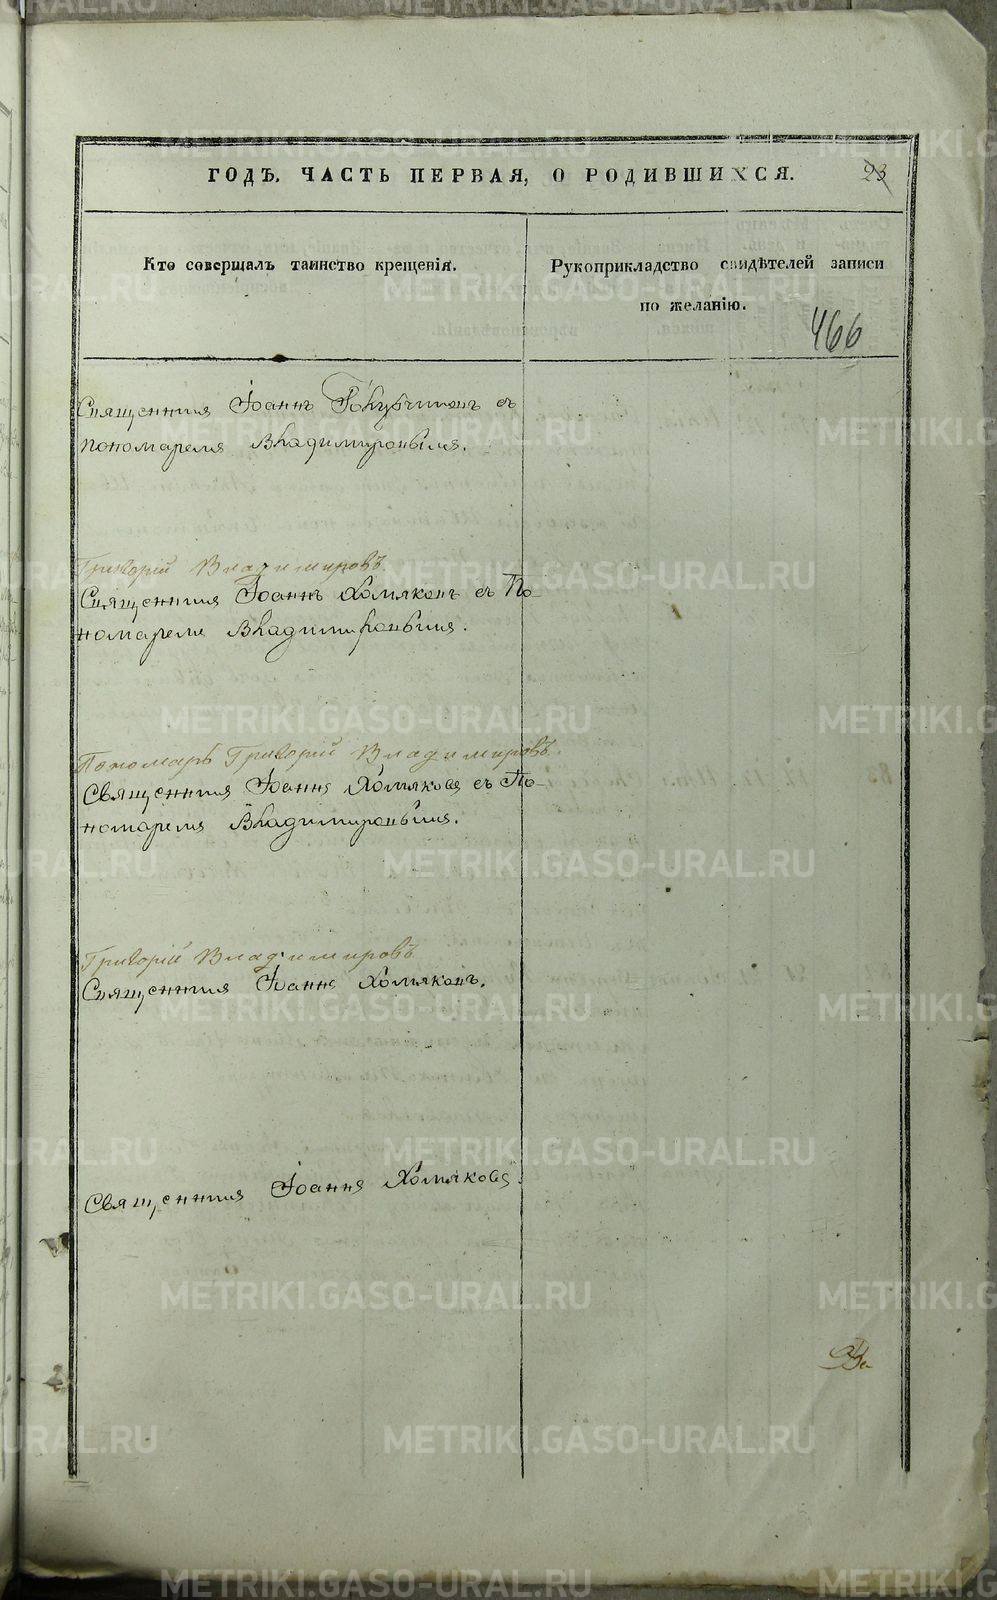 ГОДЪ. ЧАСТЬ ПЕРВАЯ, О РОДИВШИХСЯ. 23
Кто совершалъ таинство крещенія.
Рукоприкладство свидѣтелей записи
по желанію.
466
Священник Іоаннъ съ
пономаремъ Владимировымъ.
Григорій Владимировъ
Священник Іоаннъ Хомяковъ съ По-
номаремъ Владимировымъ.
Пономарь Григорій Владимировъ.
Священник Іоаннъ Хомяковъ съ По-
номаремъ Владимировымъ.
Григорій Владимировъ
Священник Іоаннъ Хомяковъ.
Священник Іоаннъ Хомяковъ.
METRIKI.GASO-URAL.RU